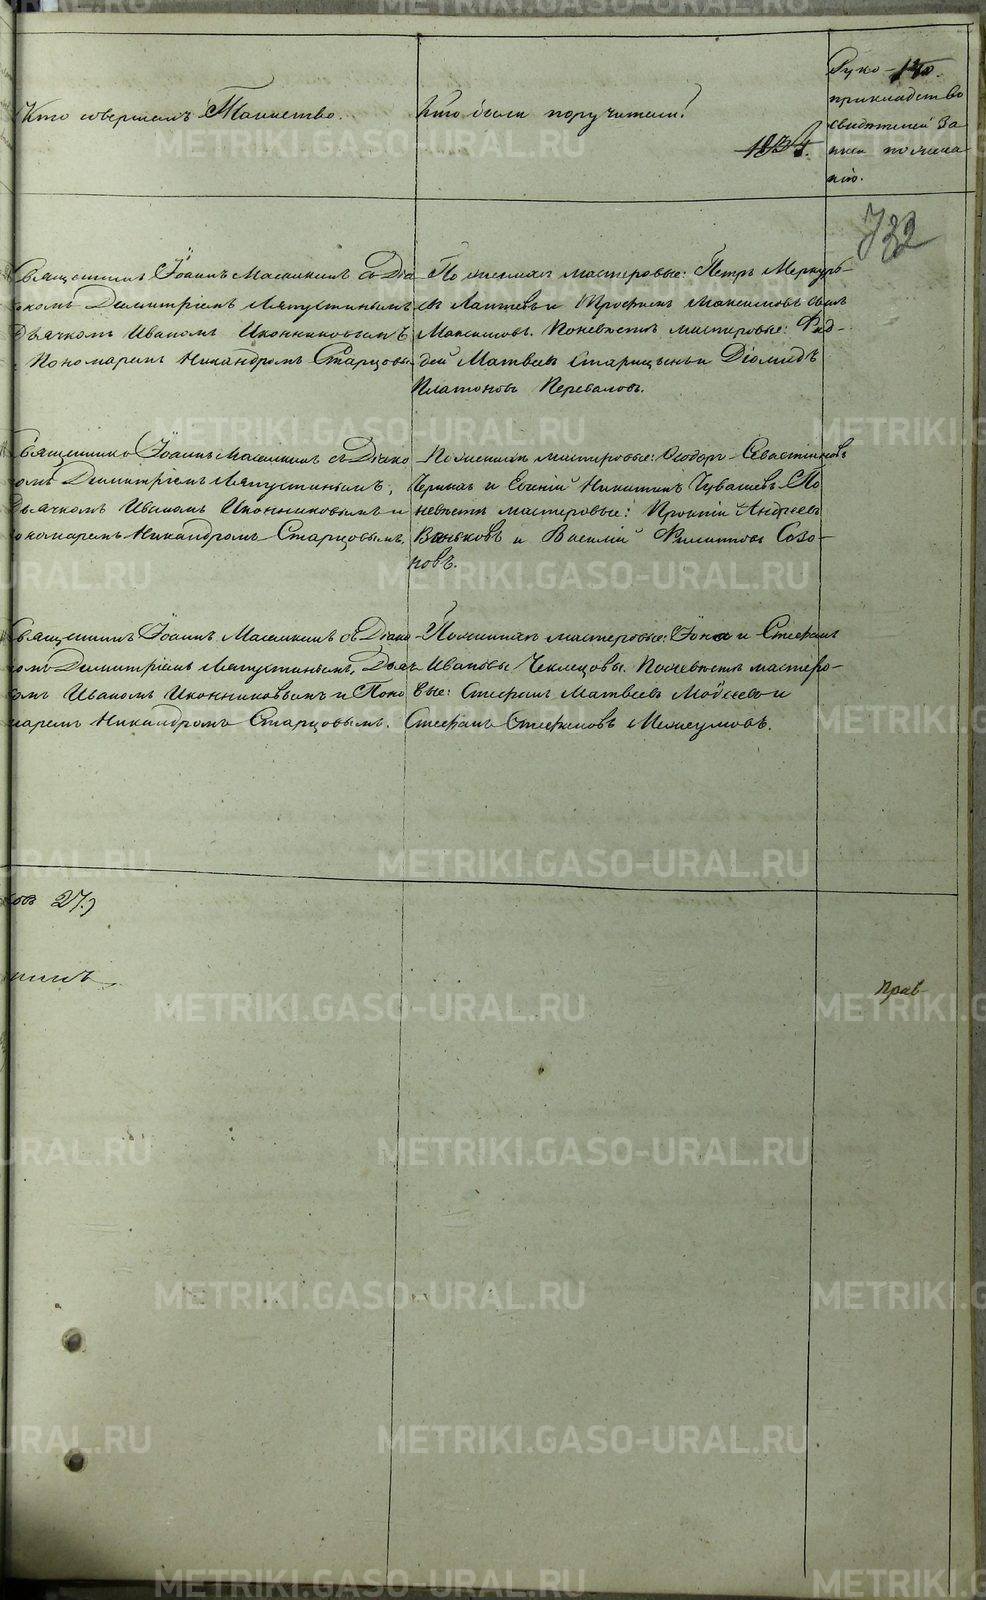 Кто совершалъ Таинство.
Кто были поручители?
Руко-
прикладство
свидѣтелей за
писи по жела
нію.
732
Священникъ Іоаннъ Масникинъ съ Діа
кономъ Димитріемъ Ляпустинымъ
Дьячкомъ Иваномъ Иконниковымъ
и Пономаремъ Никандромъ Старцовы
По женихѣ мастеровые: Петръ Меркурь-
евъ Лаптевъ и Трофимъ Максимовъ сынъ
Максимовъ. По невѣстѣ мастеровые: Фад-
дей Матвеевъ Старицынъ и Діомидъ
Платоновъ Перевалов.
Священникъ Іоаннъ Масникинъ съ Діако
номъ Димитріемъ Ляпустинымъ,
Дьячкомъ Иваномъ Иконниковымъ и
Пономаремъ Никандромъ Старцовымъ.
По женихѣ мастеровые: Ѳеодоръ Севастьяновъ
и Евгеній Никитинъ Чувашевъ. По
невѣстѣ мастеровые: Прокпій Андреевъ
Ваньковъ и Василій Филиповъ Сазо-
новъ.
Священникъ Іоаннъ Масникинъ съ Діако
номъ Димитріемъ Ляпустинымъ, Дьяч
комъ Иваномъ Иконниковымъ и Поно
маремъ Никандромъ Старцовымъ.
По женихѣ мастеровые: Іона и Стефанъ
Ивановы Чеклецовы. По невѣстѣ мастеро-
вые: Стефанъ Матвеевъ и
Стефанъ Стефановъ
27.)
прав
METRIKI.GASO-URAL.RU